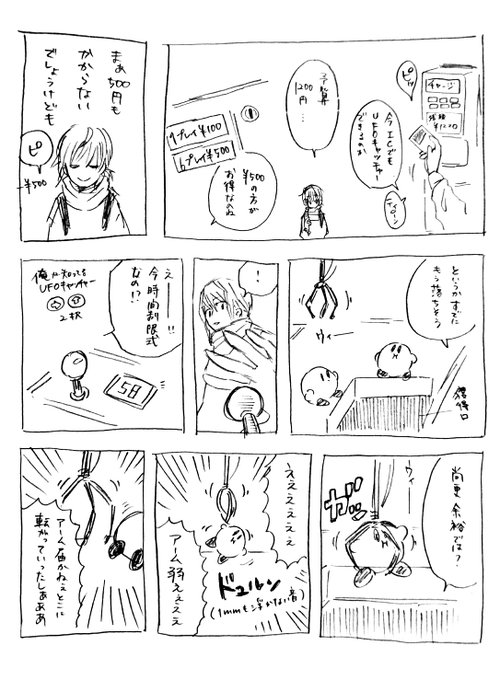 ピッ
チャージ
残額
¥1220
今ICでも
UFOキャッチャー
できるのか
ティローン
予算
1200円
…
1プレイ¥100
6プレイ¥500
¥500の方が
お得なのね
まぁ500円も
かからない
でしょうけども
ピ
-¥500
というかすでに
もう落ちそう
ウィー
獲得口
!
えーー!!
今時間制限式
なの!?
俺が知ってる
UFOキャッチャー
→ ↑
2択
58
尚更余裕では?
ウィ
ガッ
えええええええ
ドュルン
(1mmも浮かない音)
アーム弱ええええ
アーム届かねぇとこに
転がっていったしあああ